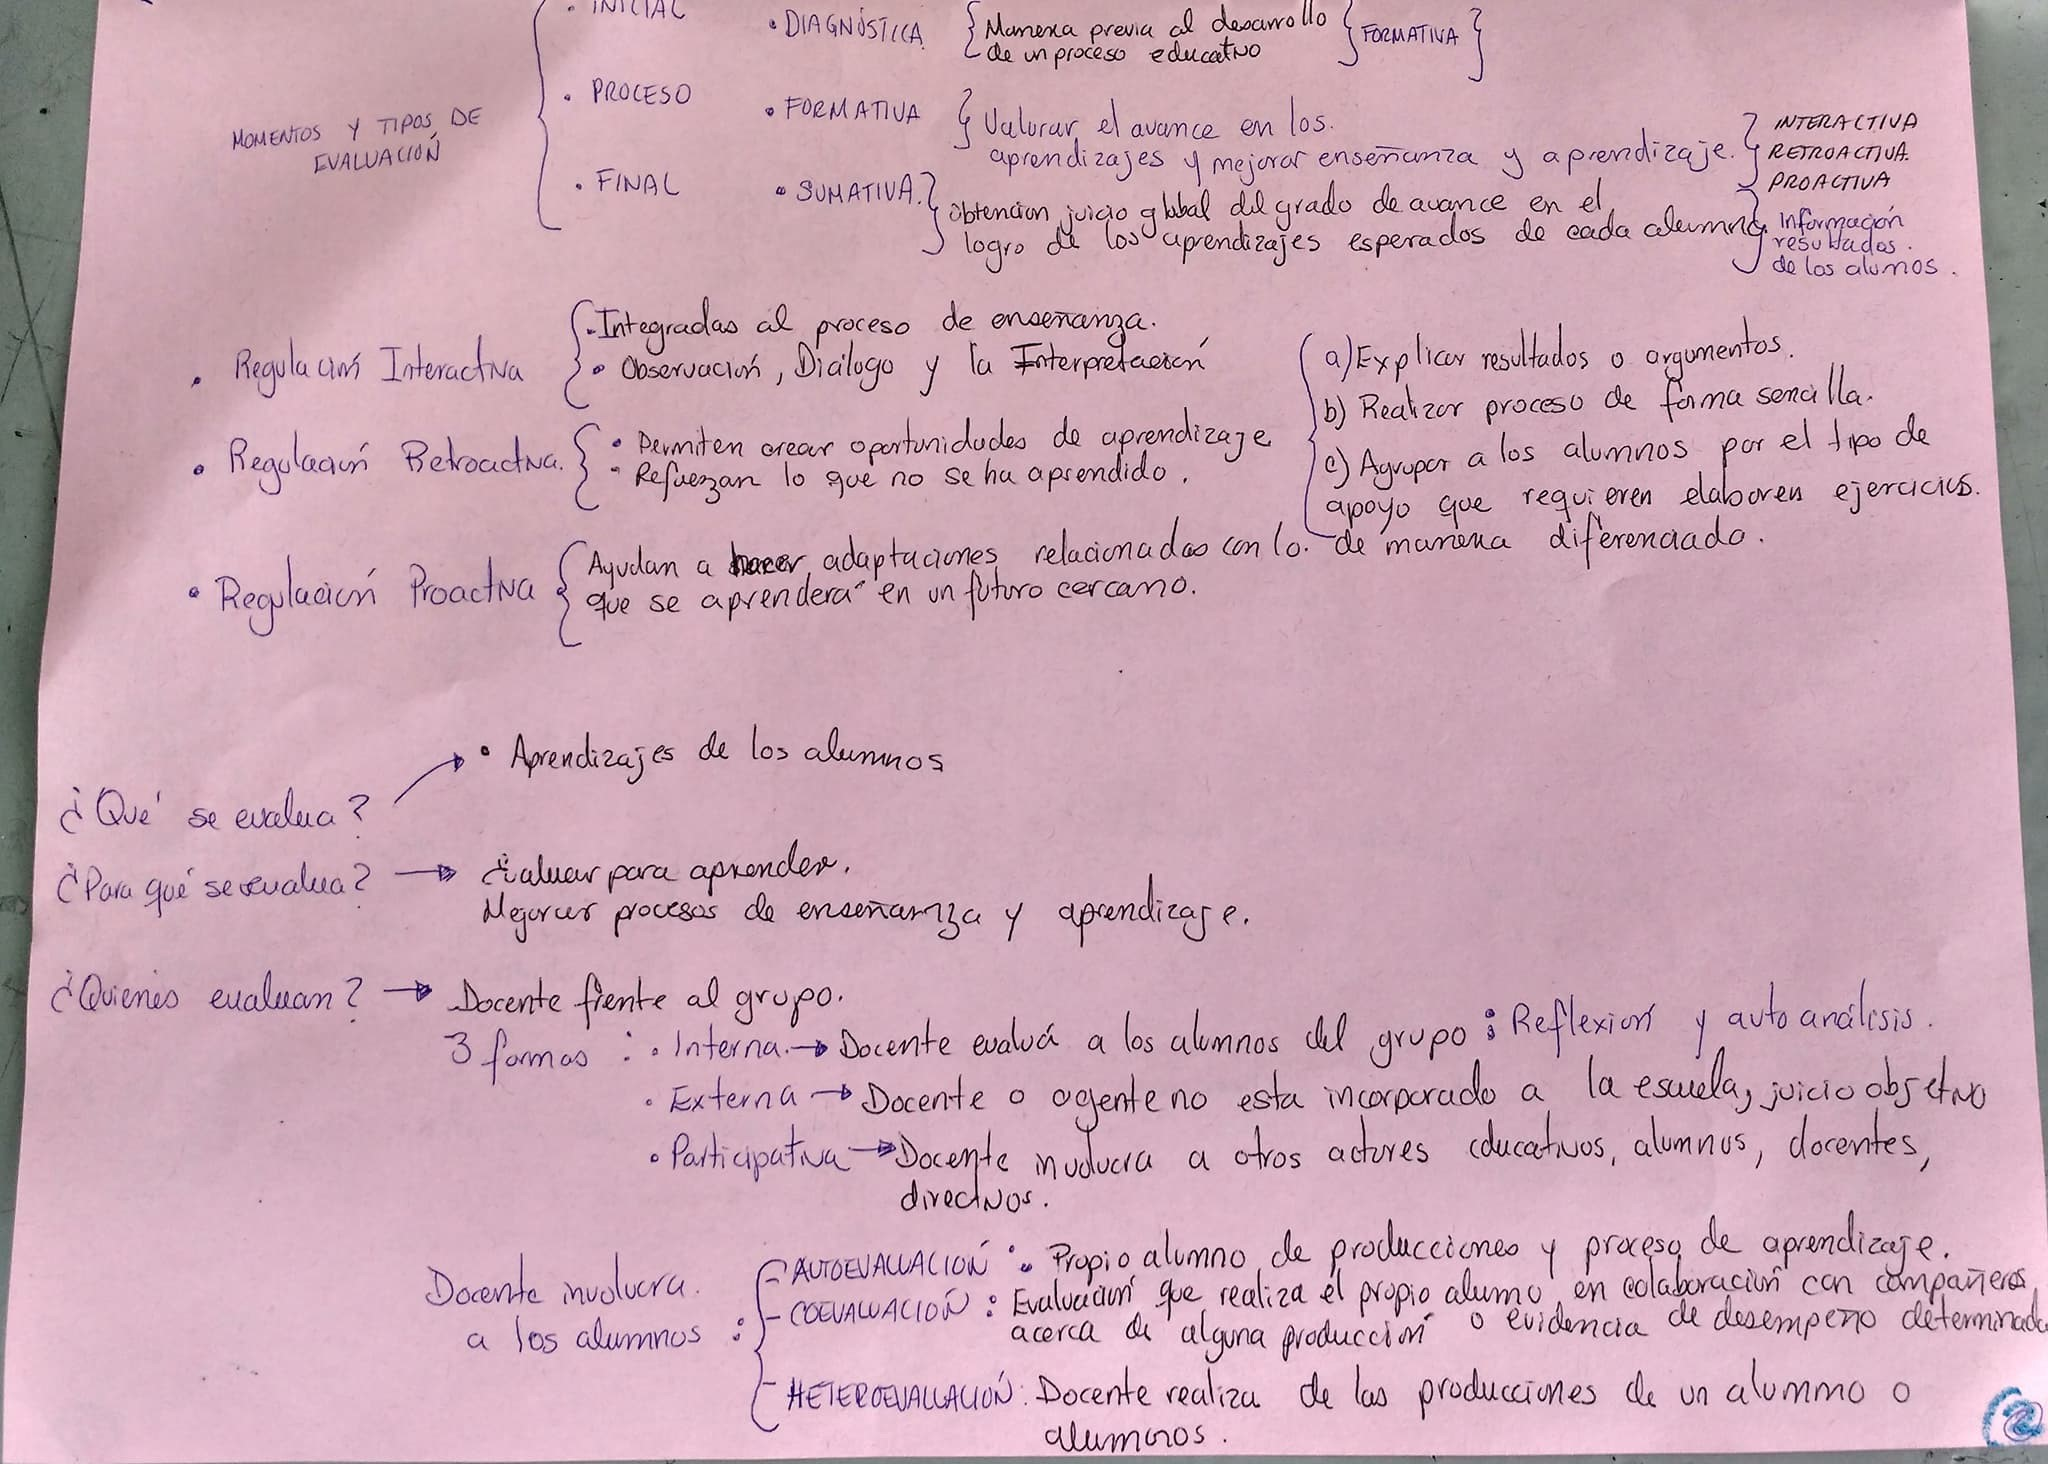 • INICIAL
• DIAGNÓSTICA
Manera previa al desarrollo
de un proceso educativo
FORMATIVA
• PROCESO
• FORMATIVA
Valorar el avance en los.
aprendizajes y mejorar enseñanza y aprendizaje.
INTERACTIVA
RETROACTIVA.
PROACTIVA
MOMENTOS Y TIPOS DE
EVALUACIÓN
• FINAL
• SUMATIVA.
Obtencion juicio global del grado de avance en el
logro de los aprendizajes esperados de cada alumno.
Información
resultados.
de los alumos.
• Regulación Interactiva
• Integradas al proceso de enseñanza.
• Observación, Diálogo y la Interpretación
• Regulación Retroactiva.
• Permiten crear oportunidades de aprendizaje
• Refuerzan lo que no se ha aprendido.
a) Explicar resultados o argumentos.
b) Realizar proceso de forma sencilla.
c) Agrupar a los alumnos por el tipo de
apoyo que requieren elaboren ejercicios.
de manera diferenciado.
• Regulación Proactiva
Ayudan a hacer adaptaciones relacionadas con lo.
que se aprenderá en un futuro cercano.
¿Qué se evalua?
• Aprendizajes de los alumnos
¿Para qué se evalua?
Evaluar para aprender.
Mejorar procesos de enseñanza y aprendizaje.
¿Quienes evaluan?
Docente frente al grupo.
3 formas : • Interna. → Docente evaluá a los alumnos del grupo : Reflexión y auto análisis.
• Externa → Docente o agente no esta incorporado a la escuela, juicio objetivo
• Participativa → Docente involucra a otros actores educativos, alumnos, docentes,
directivos.
Docente involucra.
a los alumnos :
- AUTOEVALUACIÓN : Propio alumno de producciones y proceso de aprendizaje.
- COEVALUACIÓN : Evaluación que realiza el propio alumo en colaboración con compañeros
acerca de alguna producción o evidencia de desempeño
- HETEROEVALUACIÓN: Docente realiza de las producciones de un alummo o
alumnos.
2